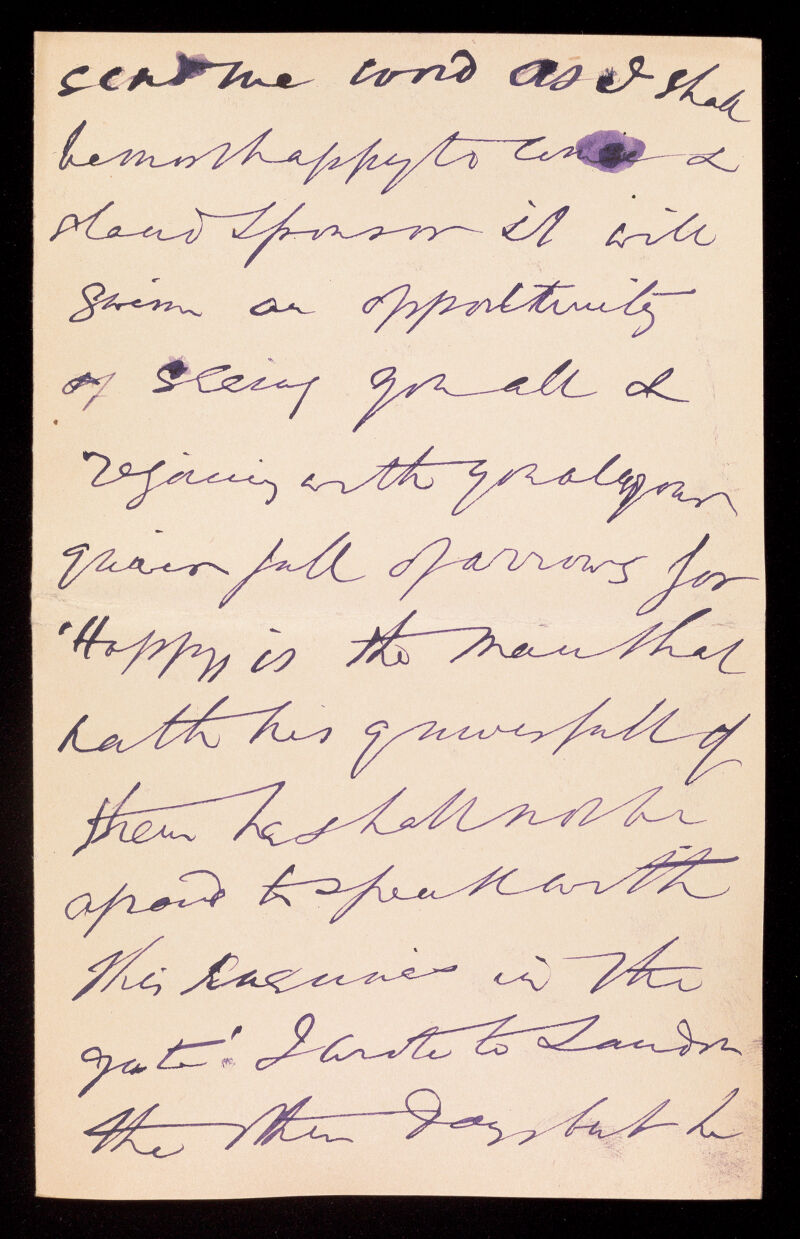 send me word as I shall
be most happy to come &
stand sponsor it will
give me an opportunity
of seeing you all &
rejoicing with you at your
quiver full of arrows for
'Happy is the man that
hath his quiver full of
them he shall not be
afraid to speak with
his enemies in the
gate'. I wrote to Landon
the other day but he